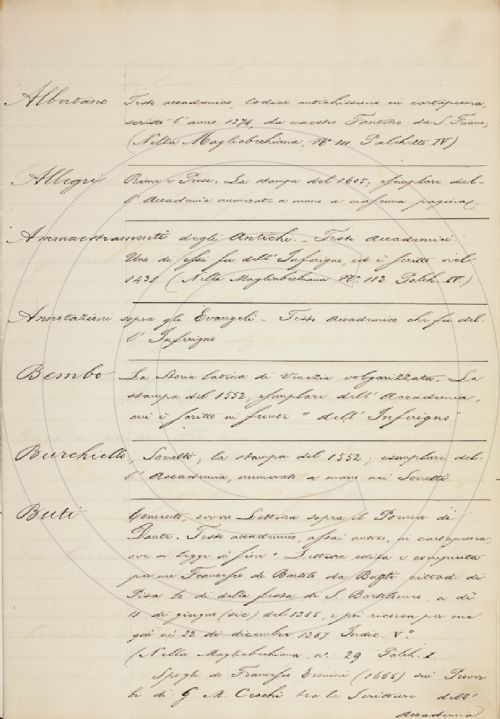 Albertano Testo accademico, Codice antichissimo in cartapecora,
scritto l'anno 1274, da maestro Fantino da S. Friano,
(Nella Magliabechiana, N° Palchetto IV)
Allegri Rime e Prose. La stampa del 1605, esemplare del-
l'Accademia numerato a mano a ciascuna pagina.
Ammaestramenti degli Antichi. - Testi Accademici.
Uno di essi fu dell'Inferigno, ed è scritto nel
1431 (Nella Magliabechiana N°. 113 Palch. IV.)
Annotazioni sopra gli Evangeli - Testo Accademico che fu del-
l'Inferigno
Bembo La Storia latina di Venezia volgarizzata. La
stampa del 1552, esemplare dell'Accademia,
ovi è scritto in fronte "dell'Inferigno"
Burchiello, Sonetti, la stampa del 1552; esemplare del-
l'Accademia, numerato a mano nei Sonetti
Buti Comento, ovvero Lettura sopra il Poema di
Dante. Testo accademico, assai antico, in cartapecora
ove si legge in fine "Lettura edita e compiuta
per me Francesco di Bartolo da Buti cittad. di
Pisa lo dì della festa di S. Bartolomeo, a dì
11 di giugno (sic) del 1385, e poi ricorsa per me
qui ai 22 di dicembre 1387 Indic. V.a
(Nella Magliabechiana, n. 29 Palch. I.
Spogli di Francesco Ermini (1665) sui Prover
bi di G. M. Cecchi tra le Scritture dell'
Accademia